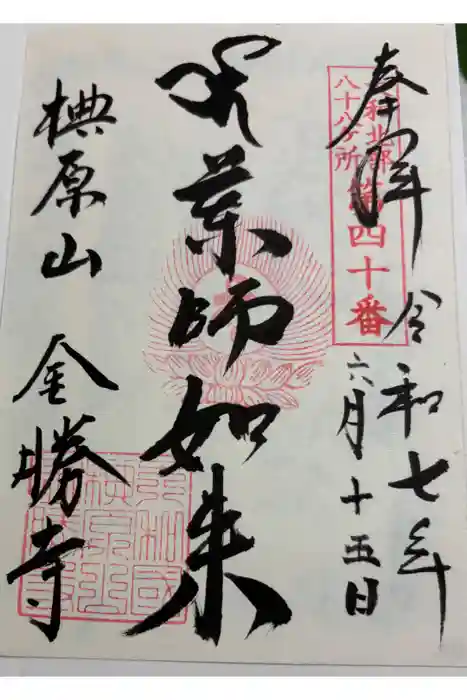 奉拝
大和北部
八十八ヶ所
第四十番
令和七年
六月十五日
薬師如来
椣原山 金勝寺